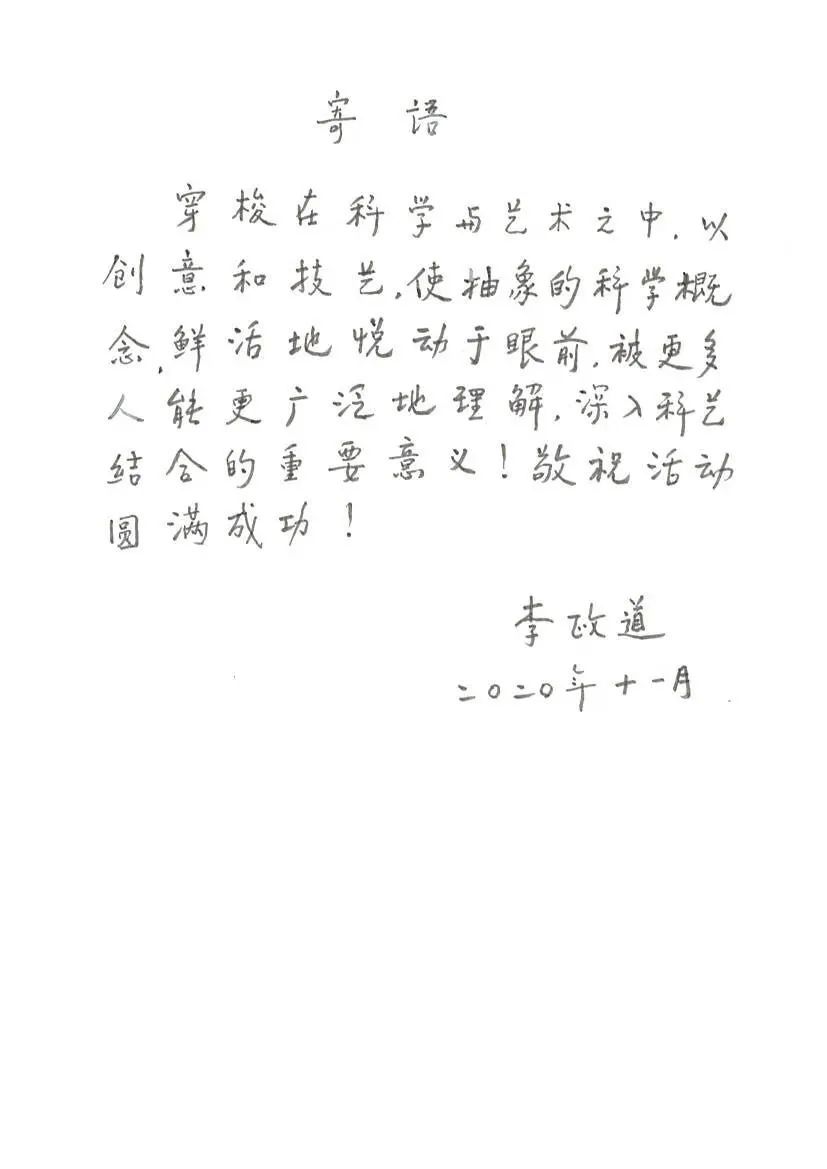 寄语
穿梭在科学与艺术之中，以
创意和技艺，使抽象的科学概
念，鲜活地悦动于眼前，被更多
人能更广泛地理解，深入科艺
结合的重要意义！敬祝活动
圆满成功！
李政道
二〇二〇年十一月